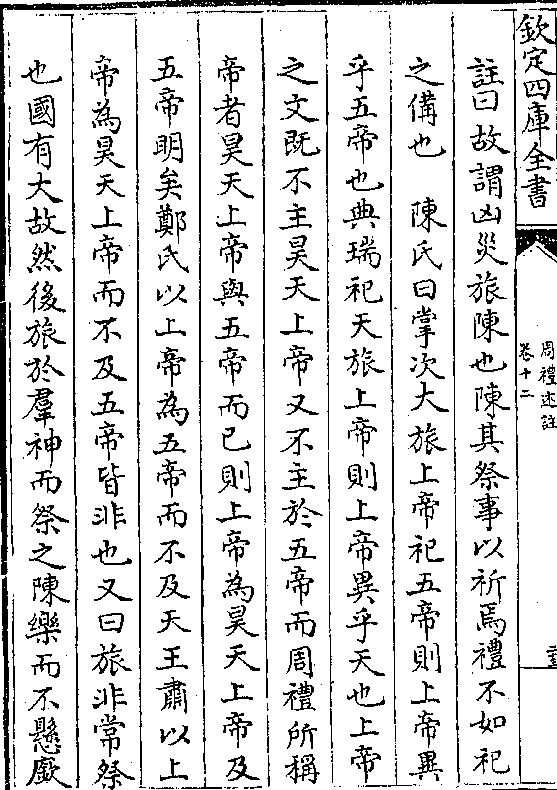 欽定四庫全書
周禮述註
卷十二
註曰故謂凶災旅陳也陳其祭事以祈焉禮不如祀
之備也　陳氏曰掌次大旅上帝祀五帝則上帝異
乎五帝也典瑞祀天旅上帝則上帝異乎天也上帝
之文既不主昊天上帝又不主於五帝而周禮所稱
帝者昊天上帝與五帝而已則上帝為昊天上帝及
五帝明矣鄭氏以上帝為五帝而不及天王肅以上
帝為昊天上帝而不及五帝皆非也又曰旅非常祭
也國有大故然後旅於羣神而祭之陳樂而不懸廞